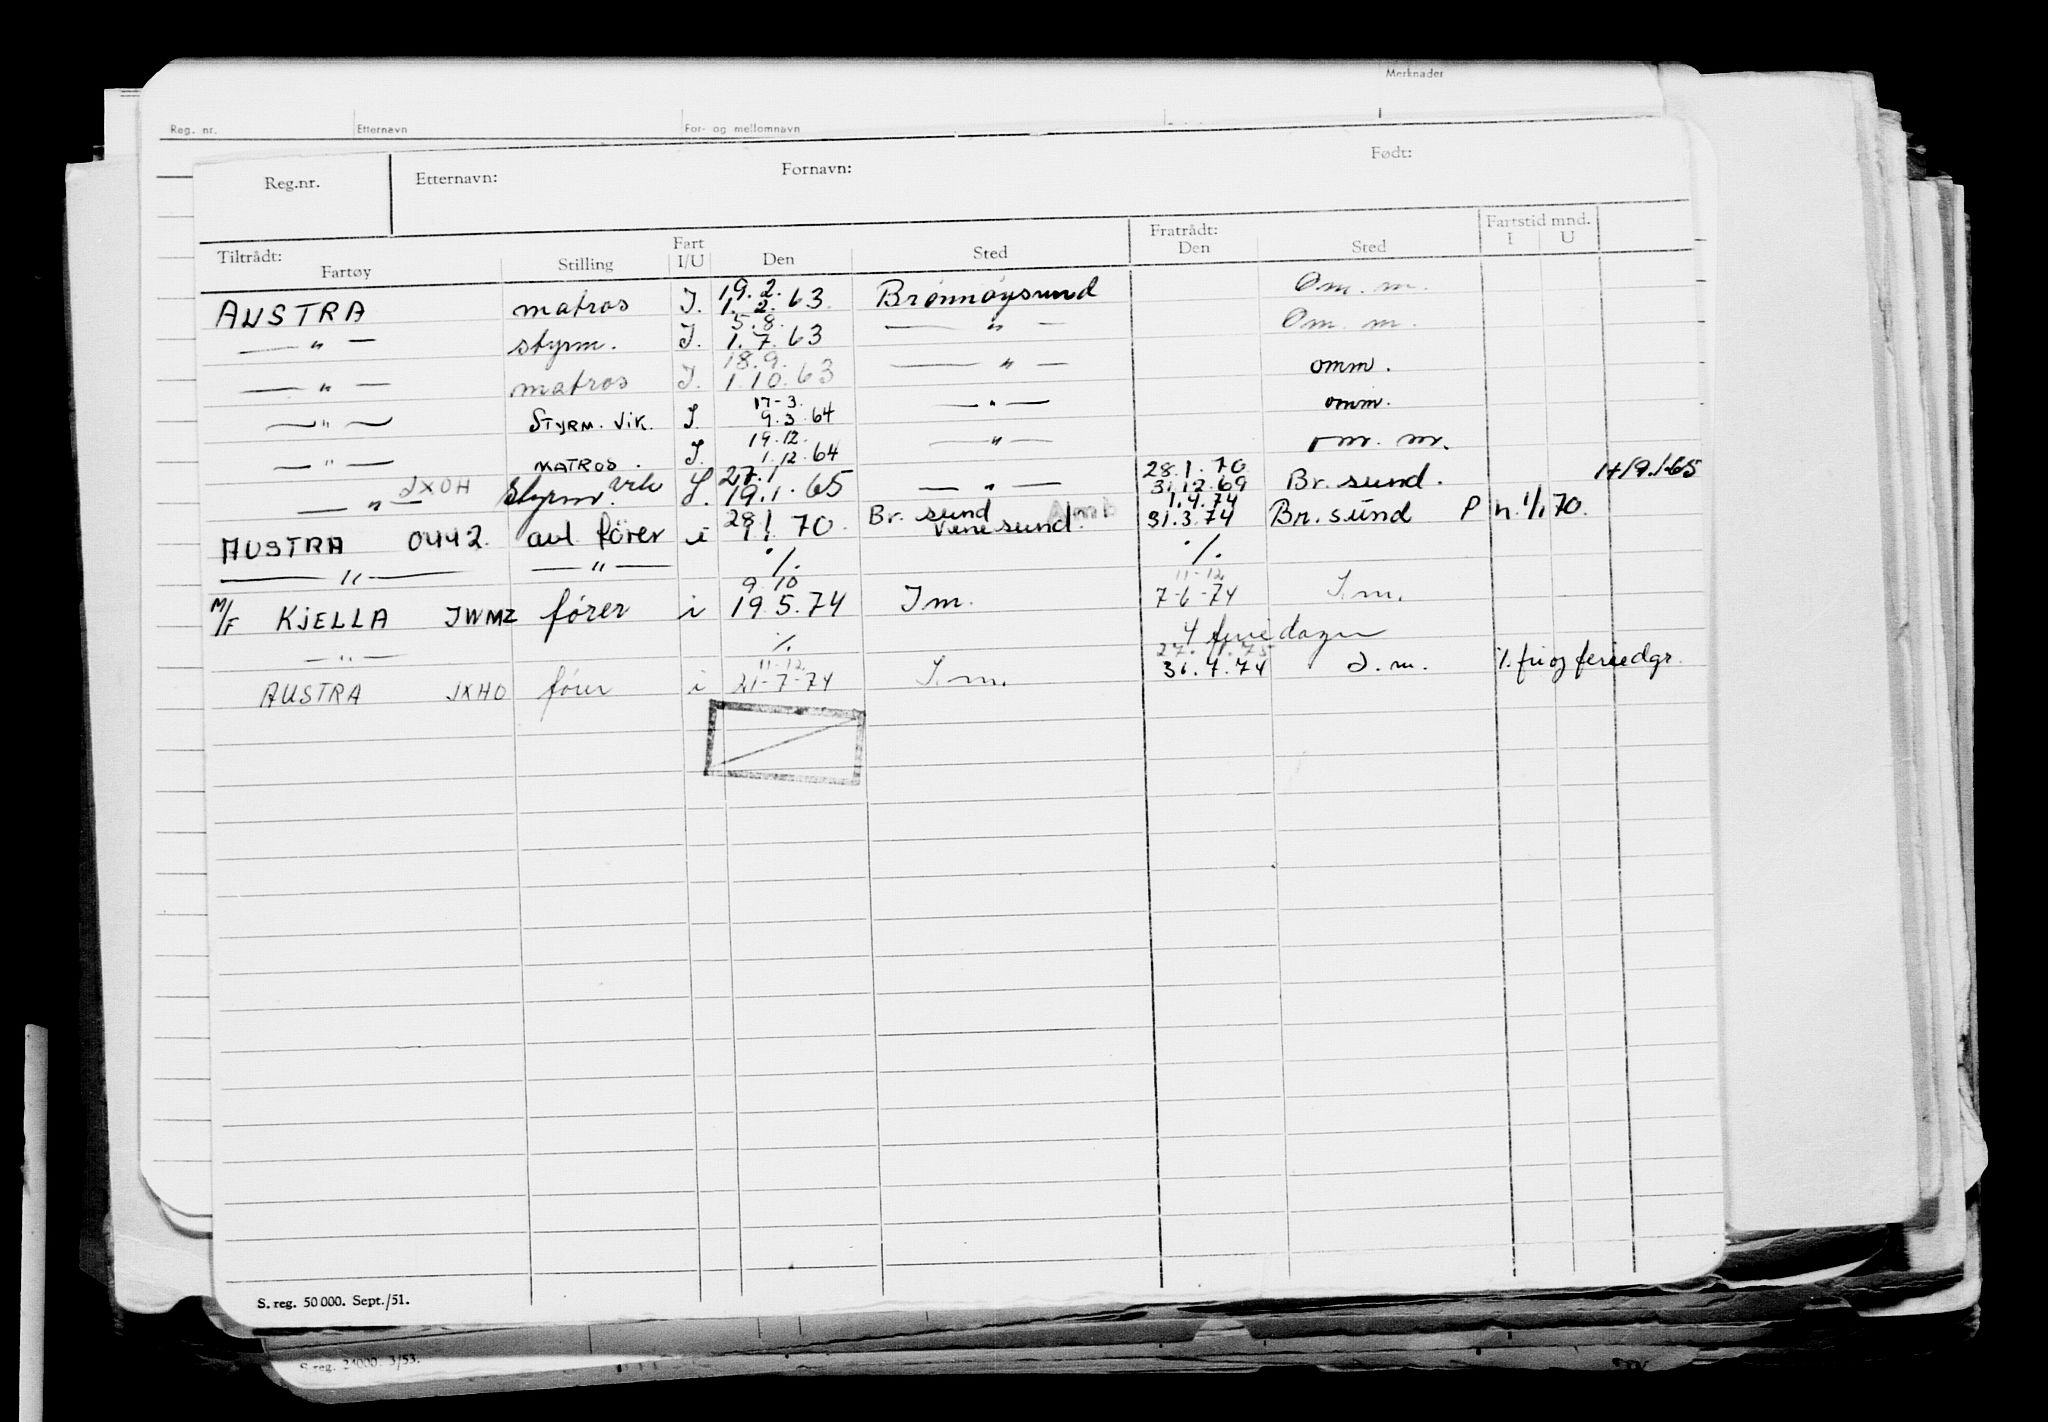 Merknader
Reg. nr. Etternavn For- og mellomnavn
Reg.nr. Etternavn: Fornavn: Født:
Tiltrådt: Fart Fratrådt: Fartstid mnd.
Fartøy Stilling I/U Den Sted Den Sted I U
19.2.
AUSTRA matros I. 1.2.63. Brønnøysund Om. m.
5.8.
— " — styrm. I. 1.7.63 — " — Om. m.
18.9.
— " — matros I. 1.10.63 — " — omm.
17-3.
— " — STYRM. VIK. I. 9.3.64 — " — omm.
19.12.
— " — MATROS. I. 1.12.64 — " — om. m.
27.1 28.1.70
— " — JXOH Styrm. vik I. 19.1.65 — " — 31.12.69 Br. sund. 19.1.65
28.1 Br. sund 1.4.74
AUSTRA 0442 avl fører i 1.1.70. sund. 31.3.74 Br. sund P n. 1/1 70.
— " — — " — ./. ./.
9/10 11-12
M/F KJELLA JWMZ fører i 19.5.74 I m. 7-6-74 I. m.
— " — ./. 4 feriedager
11-12 27.1.75
AUSTRA JXHO fører i 21-7-74 I. m. 31.7.74 I. m. ./. fri og feriedgr.
S. reg. 50 000. Sept./51.
S. reg. 24000. 3/53.